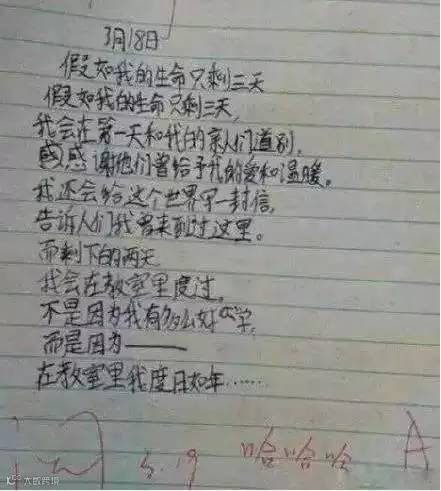 3月18日
假如我的生命只剩三天
假如我的生命只剩三天,
我会在第一天和我的亲人们道别,
感感谢他们曾给予我的爱和温暖。
我还会给这个世界写一封信,
告诉人们我曾来到过这里。
而剩下的两天
我会在教室里度过,
不是因为我有多么好学,
而是因为——
在教室里我度日如年……
阅 3.19 哈哈哈 A
大数跨境